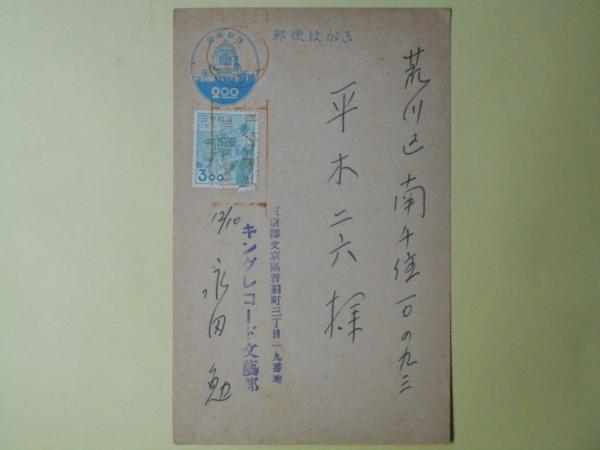 郵便はがき
2.00
3.00
荒川区南千住一〇の九三
平木二六様
東京都文京區音羽町三丁目一九番地
キングレコード文藝部
12/10
永田勉